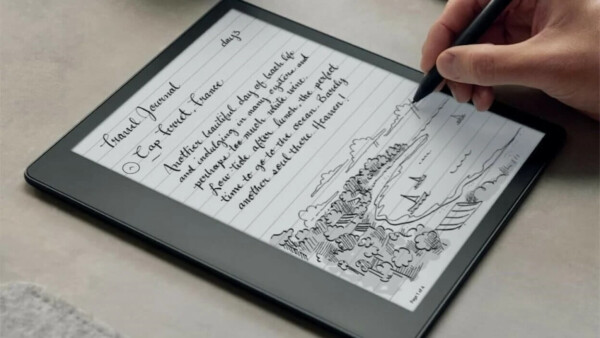 day 3
Travel Journal
Cap Ferret, France
Another beautiful day of beach life
and indulging in many oysters and
perhaps too much white wine.
Low tide after lunch, the perfect
time to go to the ocean. Barely
another soul there. Heaven!
Page 1 of 6